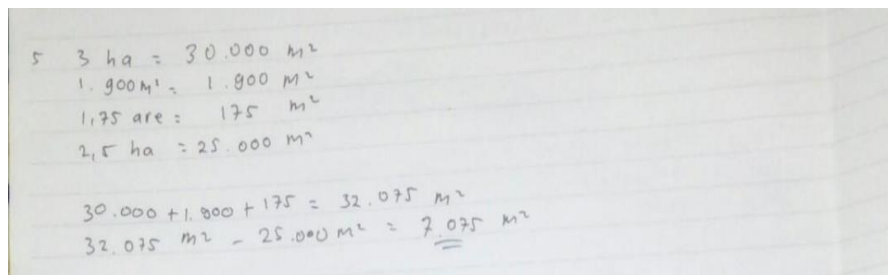 5 3 ha = 30.000 m²
1.900 m² = 1.900 m²
1,75 are = 175 m²
2,5 ha = 25.000 m²
30.000 + 1.900 + 175 = 32.075 m²
32.075 m² - 25.000 m² = 7.075 m²